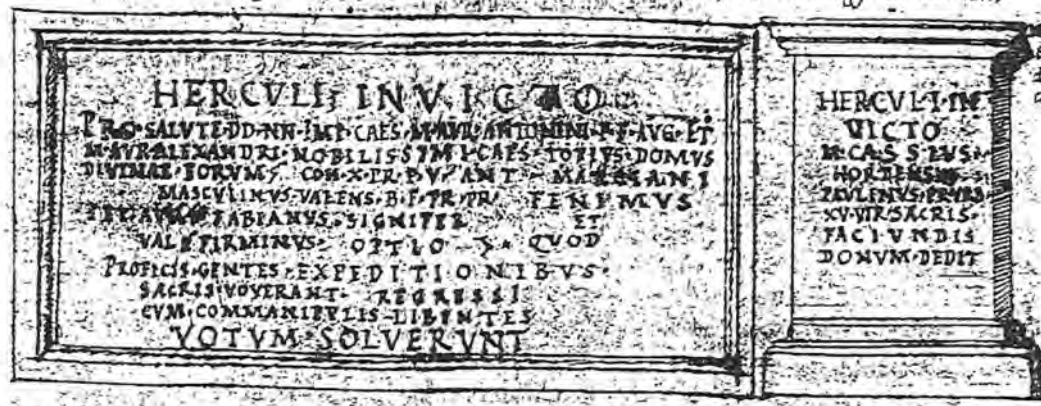 HERCVLI INVICTO
PRO·SALVTE·DD·NN·IMP·CAES·M·AVR·ANTONINI·P·F·AVG·ET
M·AVR·ALEXANDRI·NOBILISSIMI·CAES·TOTIVS·DOMVS
DIVINAE·EORVM· COH·X·PR·P·V·ANT·
MASCVLINVS·VALENS·B·F·PR·PR·
FABIANVS·SIGNIFER ET
VAL·FIRMINVS· OPTIO QVOD
PROFICISGENTES·EXPEDITIONIBVS·
SACRIS·VOVERANT· REGRESSI
CVM·COMMANIPVLIS·LIBENTES
VOTVM·SOLVERVNT
HERCVLI·IN
VICTO
M·CASSIVS·
HORTENSIVS
PAVLINVS·PR·VRB
XV·VIR·SACRIS·
FACIVNDIS
DONVM·DEDIT